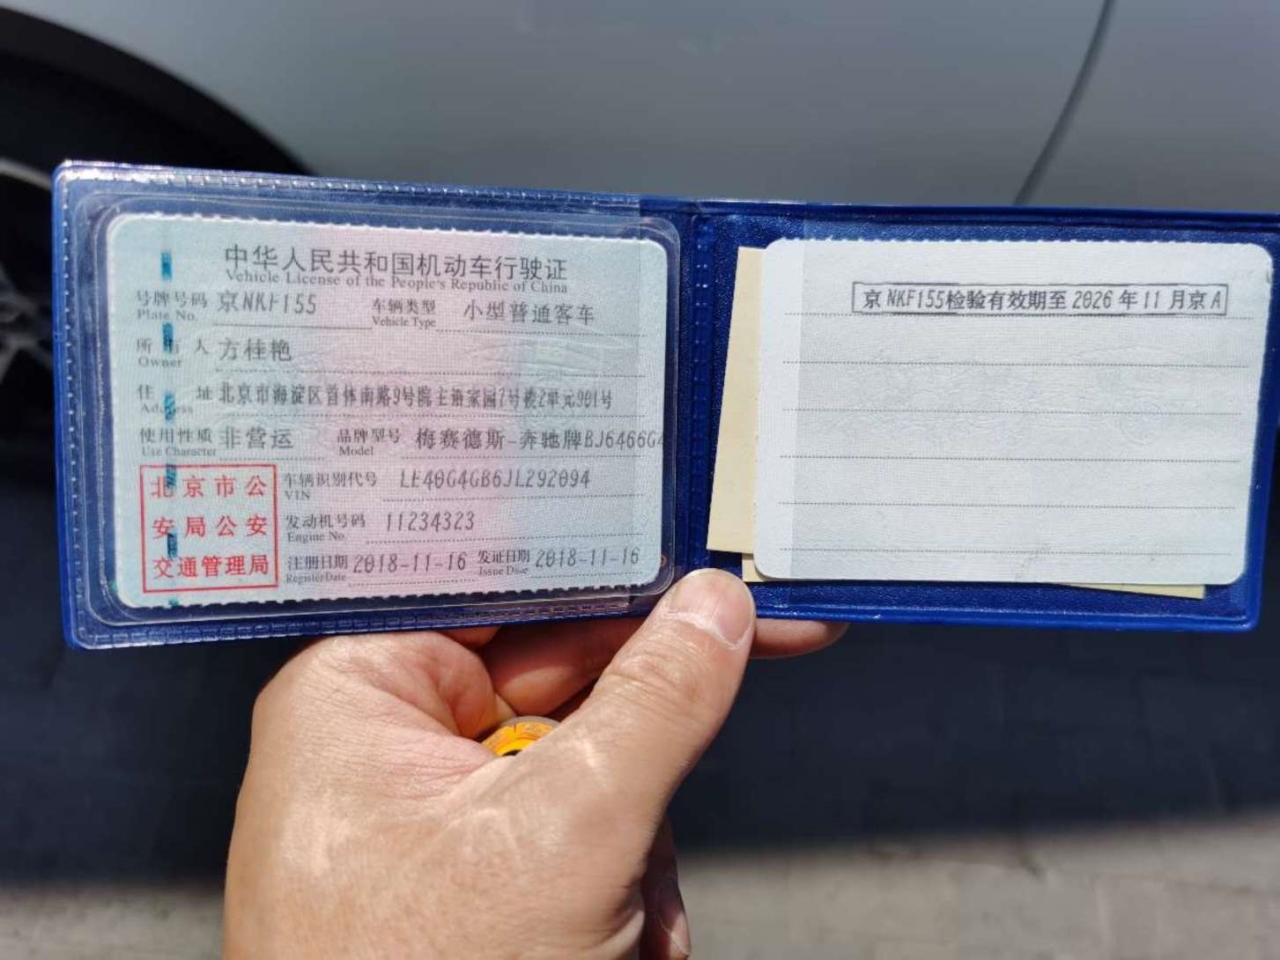 中华人民共和国机动车行驶证
Vehicle License of the People's Republic of China
号牌号码 京NKF155 车辆类型 小型普通客车
Plate No. Vehicle Type
所有人 方桂艳
Owner
住址 北京市海淀区首体南路9号院主语家园7号楼2单元901号
Address
使用性质 非营运 品牌型号 梅赛德斯-奔驰牌BJ6466G4
Use Character Model
北京市公
安局公安
交通管理局
车辆识别代号 LE40G4GB6JL292094
VIN
发动机号码 11234323
Engine No.
注册日期 2018-11-16 发证日期 2018-11-16
Register Date Issue Date
京NKF155检验有效期至2026年11月京A